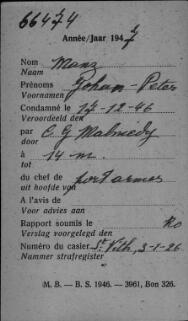 66474
Année/Jaar 1947
Nom Manz
Naam
Prénoms Johan-Peter
Voornamen
Condamné le 17-12-46
Veroordeeld den
par C. G Malmedy
door
à 14 m.
tot
du chef de port armes
uit hoofde van
A l'avis de
Voor advies aan
Rapport soumis le Ro
Verslag voorgelegd den
Numéro du casier St Vith, 3-1-26
Nummer strafregister
M. B. — B. S. 1946. — 3961, Bon 326.